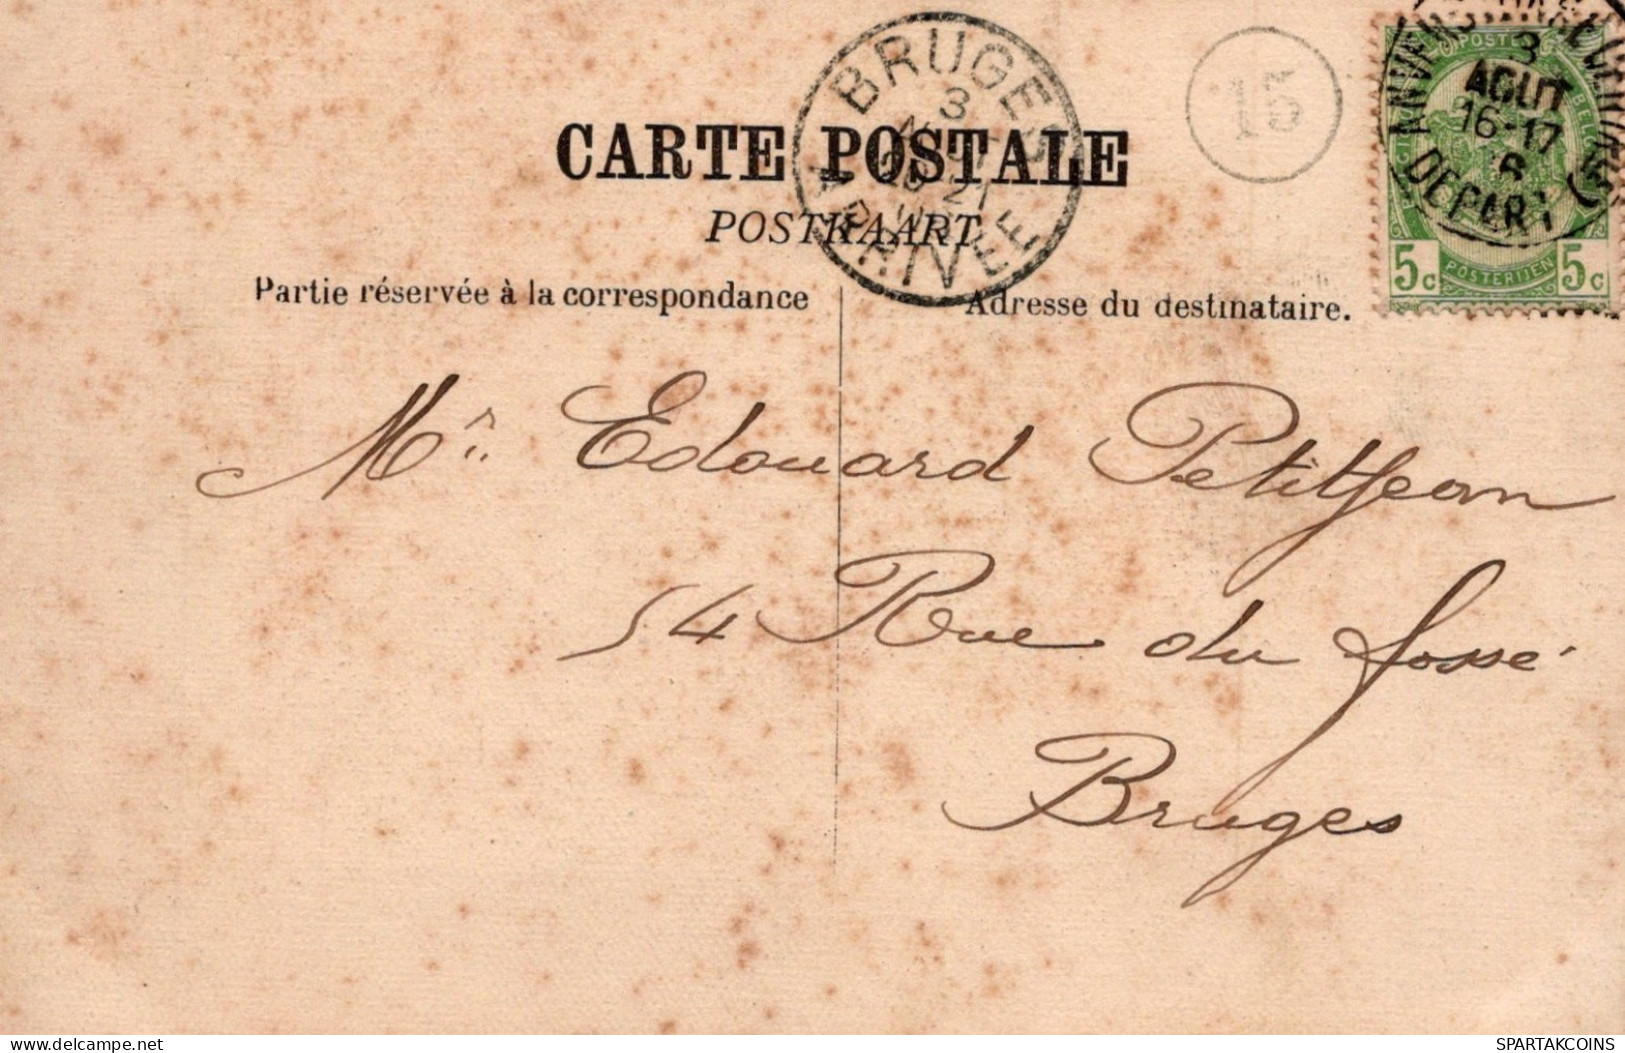 BRUGES
3
AOUT
20-21
ARRIVEE
15
ANVERS
3
AOUT
16-17
6
DEPART
POSTE
BELG
5c POSTERIJEN 5c
CARTE POSTALE
POSTKAART
Partie réservée à la correspondance
Adresse du destinataire.
Mr. Edouard Petitjean
54 Rue du fossé
Bruges
delcampe.net
SPARTAKCOINS